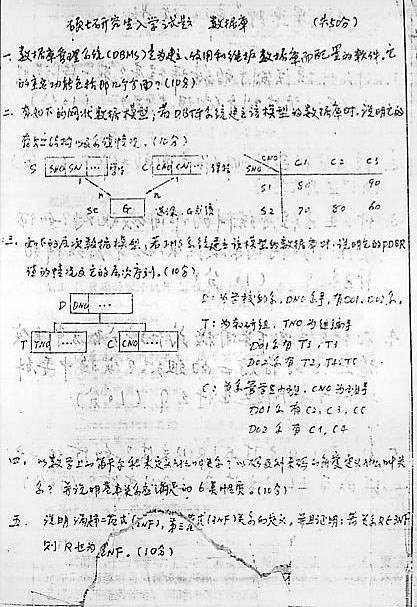 硕士研究生入学试题 数据库 (共50分)
一、数据库管理系统(DBMS)是为建立、使用和维护数据库而配置的软件,它
的主要功能包括那几个方面?(10分)
二、有如下的网状数据模型,若DBTG系统建立该模型的数据库时,说明它的
情况。(10分)
S SNO SN … 学生 C CNO CN … 课程
1 1
n n
SC G 选课,G成绩
SNO CNO C1 C2 C3
S1 80 90
S2 70 80 60
三、如下的层次数据模型,若IMS系统建立该模型的数据库时,说明它的PDBR
值的情况及它的层次序列。(10分)
D DNO …
T TNO … C CNO …
D:为学校的系,DNO系号,有D01、D02系。
T:为教研组,TNO为组编号
D01系有T1,T3
D02系有T2,T4,T5
C:为系 学生班,CNO为班号
D01系有C2,C3,C5
D02系有C1,C4
四、以数学上的笛卡尔积来定义 关系?以 定义 叫关
系?并说明基本关系应满足的6条性质。(10分)
五、说明满足三范式(3NF),第二范式(2NF)关系的定义,并且证明:若关系R∈3NF
则R也为2NF。(10分)